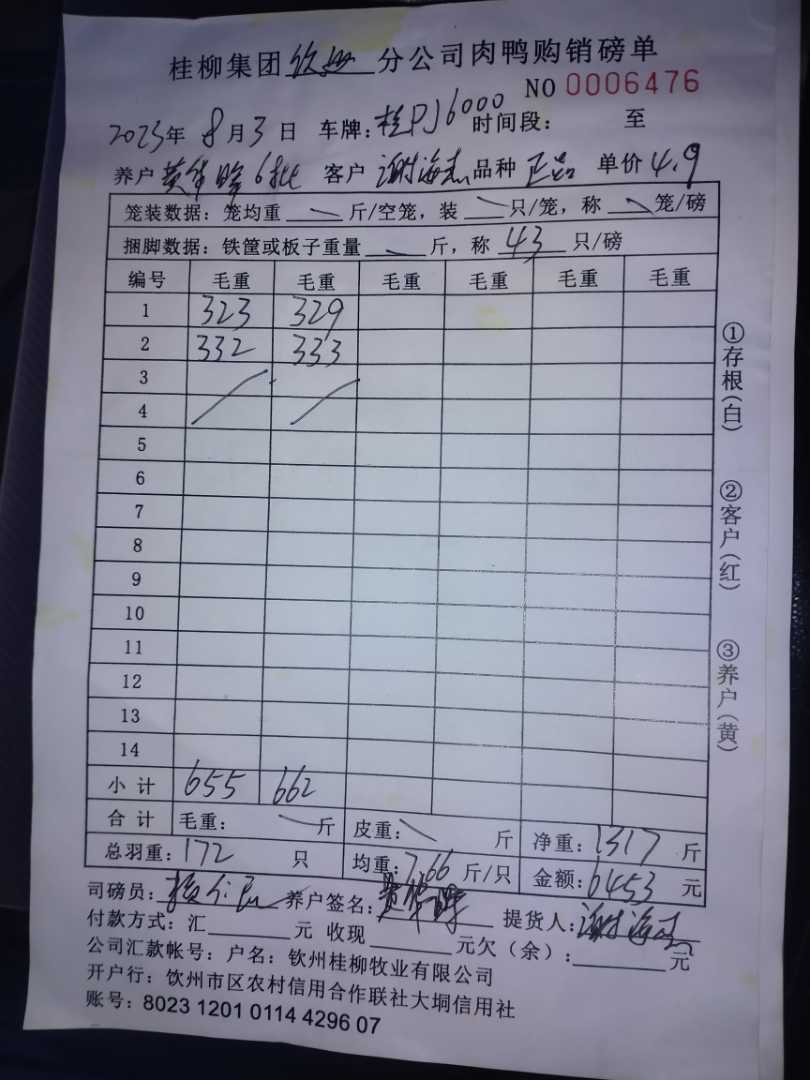 桂柳集团 钦州 分公司肉鸭购销磅单
NO 0006476
2023年 8月3日 车牌:桂PJ6000 时间段: 至
养户 黄华 6批 客户 谢海杰 品种 正品 单价 4.9
笼装数据:笼均重 斤/空笼,装 只/笼,称 笼/磅
捆脚数据:铁筐或板子重量 斤,称 43 只/磅
编号 毛重 毛重 毛重 毛重 毛重 毛重
1 323 329
2 332 333
3
4
5
6
7
8
9
10
11
12
13
14
小计 655 662
合计 毛重: 斤 皮重: 斤 净重:1317 斤
总羽重:172 只 均重:7.66 斤/只 金额:6453 元
司磅员: 养户签名:黄华 提货人:谢海杰
付款方式:汇 元 收现 元欠(余): 元
公司汇款帐号:户名:钦州桂柳牧业有限公司
开户行:钦州市区农村信用合作联社大垌信用社
账号:8023 1201 0114 4296 07
①存根(白)
②客户(红)
③养户(黄)